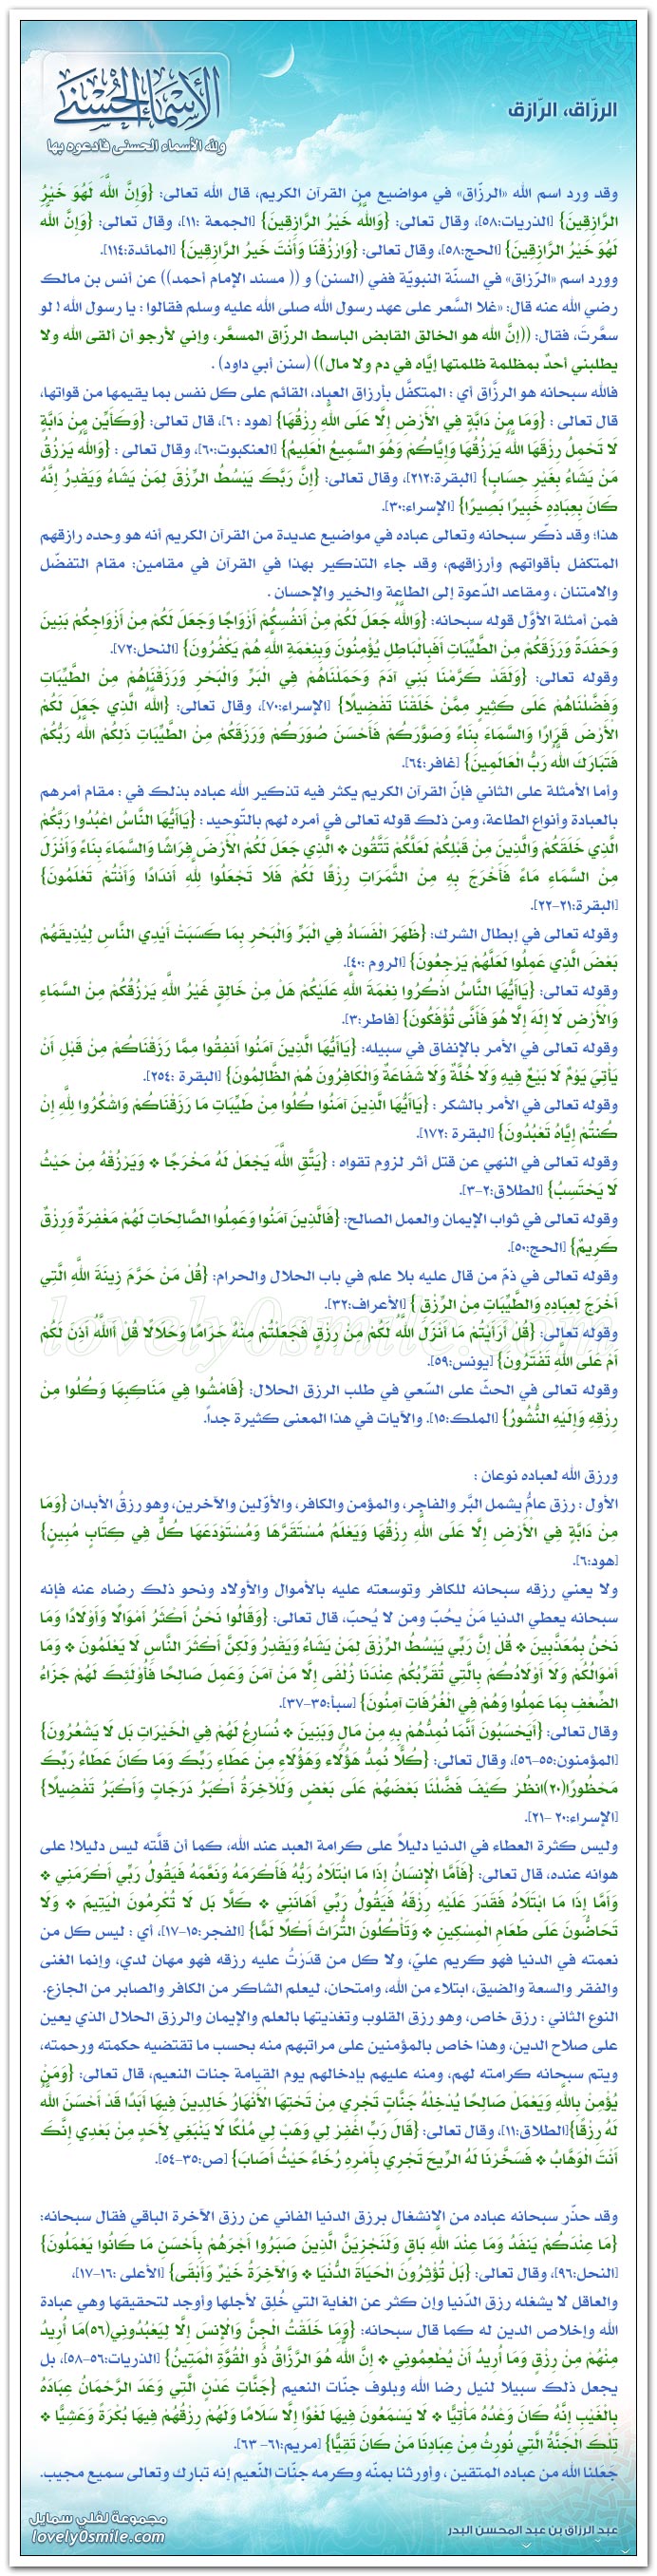 الأسماء الحسنى
ولله الأسماء الحسنى فادعوه بها
الرزّاق، الرّازق
وقد ورد اسم الله «الرزّاق» في مواضيع من القرآن الكريم، قال الله تعالى: {وَإِنَّ اللَّهَ لَهُوَ خَيْرُ
الرَّازِقِينَ} [الذريات:٥٨]، وقال تعالى: {وَاللَّهُ خَيْرُ الرَّازِقِينَ} [الجمعة :١١]، وقال تعالى: {وَإِنَّ اللَّه
لَهُوَ خَيْرُ الرَّازِقِينَ} [الحج:٥٨]، وقال تعالى: {وَارْزُقْنَا وَأَنْتَ خَيرُ الرَّازِقِينَ} [المائدة:١١٤].
وورد اسم «الرّزاق» في السنّة النبويّة ففي (السنن) و (( مسند الإمام أحمد)) عن أنس بن مالك
رضي الله عنه قال: «غلا السَّعر على عهد رسول الله صلى الله عليه وسلم فقالوا : يا رسول الله ! لو
سعَّرتَ، فقال: ((إنَّ الله هو الخالق القابض الباسط الرزّاق المسعَّر، وإني لأرجو أن ألقى الله ولا
يطلبني أحدٌ بمظلمة ظلمتها إيَّاه في دم ولا مال)) (سنن أبي داود) .
فالله سبحانه هو الرزَّاق أي : المتكفَّل بأرزاق العباد، القائم على كل نفس بما يقيمها من قواتها،
قال تعالى : {وَمَا مِن دَابَّةٍ فِي الأَرْضِ إِلَّا عَلَى اللَّهِ رِزْقُهَا} [هود : ٦]، قال تعالى: {وَكَأَيِّن مِنْ دَابَّةٍ
لَا تَحمِلُ رِزْقَهَا اللَّه يَرْزُقُهَا وَإِيَّاكُمْ وَهُوَ السَّمِيعُ العَلِيمُ} [العنكبوت:٦٠]، وقال تعالى : {وَاللَّه يَرْزُقُ
مَنْ يَشَاءُ بِغَيرِ حِسابٍ} [البقرة:٢١٢]، وقال تعالى: {إِنَّ رَبَّكَ يَبْسُطُ الرِّزْقَ لِمَنْ يَشَاءُ وَيَقْدِرُ إِنَّهُ
كَانَ بِعِبَادِهِ خَبِيرًا بَصِيرًا} [الإسراء:٣٠].
هذا؛ وقد ذكّر سبحانه وتعالى عباده في مواضيع عديدة من القرآن الكريم أنه هو وحده رازقهم
المتكفل بأقواتهم وأرزاقهم، وقد جاء التذكير بهذا في القرآن في مقامين: مقام التفضّل
والامتنان ، ومقاعد الدّعوة إلى الطاعة والخير والإحسان .
فمن أمثلة الأوَّل قوله سبحانه: {وَاللَّهُ جَعَلَ لَكُمْ مِنْ أَنفُسِكُمْ أَزْوَاجًا وَجَعَلَ لَكُمْ مِنْ أَزْوَاجِكُمْ بَنِينَ
وَحَفَدَةً وَرَزَقَكُمْ مِنَ الطَّيِّبَاتِ أَفَبِالْبَاطِلِ يُؤْمِنُونَ وَبِنِعْمَةِ اللَّهِ هُمْ يَكْفُرُونَ} [النحل:٧٢].
وقوله تعالى: {وَلَقَدْ كَرَّمْنَا بَنِي آدَمَ وَحَمَلْنَاهُمْ فِي الْبَرِّ وَالْبَحْرِ وَرَزَقْنَاهُمْ مِنَ الطَّيِّبَاتِ
وَفَضَّلْنَاهُمْ عَلَى كَثِيرٍ مِمَّنْ خَلَقْنَا تَفْضِيلًا} [الإسراء:٧٠]، وقال تعالى: {اللَّهُ الَّذِي جَعَلَ لَكُمُ
الْأَرْضَ قَرَارًا وَالسَّمَاءَ بِنَاءً وَصَوَّرَكُمْ فَأَحْسَنَ صُوَرَكُمْ وَرَزَقَكُمْ مِنَ الطَّيِّبَاتِ ذَلِكُمُ اللَّه رَبُّكُمْ
فَتَبَارَكَ اللَّه رَبُّ الْعَالَمِينَ} [غافر:٦٤].
وأما الأمثلة على الثاني فإنّ القرآن الكريم يكثر فيه تذكير الله عباده بذلك في : مقام أمرهم
بالعبادة وأنواع الطاعة، ومن ذلك قوله تعالى في أمره لهم بالتّوحيد : {يَاأَيُّهَا النَّاسُ اعْبُدُوا رَبَّكُمُ
الَّذِي خَلَقَكُمْ وَالَّذِينَ مِنْ قَبْلِكُمْ لَعَلَّكُمْ تَتَّقُون * الَّذِي جَعَلَ لَكُمُ الْأَرْضَ فِرَاشًا وَالسَّمَاءَ بِنَاءً وَأَنْزَلَ
مِنَ السَّمَاءِ مَاءً فَأَخْرَجَ بِهِ مِنَ الثَّمَرَاتِ رِزْقًا لَكُمْ فَلَا تَجْعَلُوا لِلَّهِ أَندَادًا وَأَنْتُمْ تَعْلَمُونَ}
[البقرة:٢١-٢٢].
وقوله تعالى في إبطال الشرك: {ظَهَرَ الْفَسَادُ فِي الْبَرِّ وَالْبَحْرِ بِمَا كَسَبَتْ أَيْدِي النَّاسِ لِيُذِيقَهُمْ
بَعْضَ الَّذِي عَمِلُوا لَعَلَّهُمْ يَرْجِعُونَ} [الروم :٤٠].
وقوله تعالى: {يَاأَيُّهَا النَّاسُ اذْكُرُوا نِعْمَةَ اللَّهِ عَلَيْكُمْ هَلْ مِنْ خَالِقٍ غَيْرُ اللَّهِ يَرْزُقُكُمْ مِنَ السَّمَاءِ
وَالْأَرْضِ لَا إِلَهَ إِلَّا هُوَ فَأَنَّى تُؤْفَكُونَ} [فاطر:٣].
وقوله تعالى في الأمر بالإنفاق في سبيله: {يَاأَيُّهَا الَّذِينَ آمَنُوا أَنفِقُوا مِمَّا رَزَقْنَاكُمْ مِنْ قَبْلِ أَنْ
يَأْتِيَ يَوْمٌ لَا بَيْعٌ فِيهِ وَلَا خُلَّةٌ وَلَا شَفَاعَةٌ وَالْكَافِرُونَ هُمُ الظَّالِمُونَ} [البقرة :٢٥٤].
وقوله تعالى في الأمر بالشكر : {يَاأَيُّهَا الَّذِينَ آمَنُوا كُلُوا مِنْ طَيِّبَاتِ مَا رَزَقْنَاكُمْ وَاشْكُرُوا لِلَّهِ إِنْ
كُنتُمْ إِيَّاهُ تَعْبُدُونَ} [البقرة :١٧٢].
وقوله تعالى في النهي عن قتل أثر لزوم تقواه : {يَتَّقِ اللَّهَ يَجْعَلْ لَهُ مَخْرَجًا * وَيَرْزُقْهُ مِنْ حَيْثُ
لَا يَحْتَسِبُ} [الطلاق:٢-٣].
وقوله تعالى في ثواب الإيمان والعمل الصالح: {فَالَّذِينَ آمَنُوا وَعَمِلُوا الصَّالِحَاتِ لَهُمْ مَغْفِرَةٌ وَرِزْقٌ
كَرِيمٌ} [الحج:٥٠].
وقوله تعالى في ذمّ من قال عليه بلا علم في باب الحلال والحرام: {قُلْ مَنْ حَرَّمَ زِينَةَ اللَّهِ الَّتِي
أَخْرَجَ لِعِبَادِهِ وَالطَّيِّبَاتِ مِنَ الرِّزْقِ } [الأعراف:٣٢].
وقوله تعالى: {قُل أَرَأَيْتُمْ مَا أَنْزَلَ اللَّهُ لَكُمْ مِنْ رِزْقٍ فَجَعَلْتُمْ مِنْهُ حَرَامًا وَحَلَالًا قُلْ آاللَّهُ أَذِنَ لَكُمْ
أَمْ عَلَى اللَّهِ تَفْتَرُونَ} [يونس:٥٩].
وقوله تعالى في الحثّ على السّعي في طلب الرزق الحلال: {فَامْشُوا فِي مَنَاكِبِهَا وَكُلُوا مِنْ
رِزْقِهِ وَإِلَيْهِ النُّشُورُ} [الملك:١٥]. والآيات في هذا المعنى كثيرة جداً.
ورزق الله لعباده نوعان :
الأول : رزق عامُّ يشمل البَّر والفاجر، والمؤمن والكافر، والأوّلين والآخرين، وهو رزقُ الأبدان {وَمَا
مِنْ دَابَّةٍ فِي الْأَرْضِ إِلَّا عَلَى اللَّهِ رِزْقُهَا وَيَعْلَمُ مُسْتَقَرَّهَا وَمُسْتَوْدَعَهَا كُلٌّ فِي كِتَابٍ مُبِينٍ}
[هود:٦].
ولا يعني رزقه سبحانه للكافر وتوسعته عليه بالأموال والأولاد ونحو ذلك رضاه عنه فإنه
سبحانه يعطي الدنيا مَنْ يحُبّ ومن لا يُحبّ، قال تعالى: {وَقَالُوا نَحْنُ أَكْثَرُ أَمْوَالًا وَأَوْلَادًا وَمَا
نَحْنُ بِمُعَذَّبِينَ * قُلْ إِنَّ رَبِّي يَبْسُطُ الرِّزْقَ لِمَنْ يَشَاءُ وَيَقْدِرُ وَلَكِنَّ أَكْثَرَ النَّاسِ لَا يَعْلَمُونَ * وَمَا
أَمْوَالُكُمْ وَلَا أَوْلَادُكُمْ بِالَّتِي تُقَرِّبُكُمْ عِندَنَا زُلْفَى إِلَّا مَنْ آمَنَ وَعَمِلَ صَالِحًا فَأُوْلَئِكَ لَهُمْ جَزَاءُ
الضِّعْفِ بِمَا عَمِلُوا وَهُمْ فِي الْغُرُفَاتِ آمِنُونَ} [سبأ:٣٥-٣٧].
وقال تعالى: {أَيَحْسَبُونَ أَنَّمَا نُمِدُّهُمْ بِهِ مِنْ مَالٍ وَبَنِينَ * نُسَارِعُ لَهُمْ فِي الْخَيْرَاتِ بَل لَا يَشْعُرُونَ}
[المؤمنون:٥٥-٥٦]، وقال تعالى: {كُلًّا نُمِدُّ هَؤُلَاءِ وَهَؤُلَاءِ مِنْ عَطَاءِ رَبِّكَ وَمَا كَانَ عَطَاءُ رَبِّكَ
مَحْظُورًا(٢٠)انظُرْ كَيْفَ فَضَّلْنَا بَعْضَهُمْ عَلَى بَعْضٍ وَلَلْآخِرَةُ أَكْبَرُ دَرَجَاتٍ وَأَكْبَرُ تَفْضِيلًا}
[الإسراء:٢٠ -٢١].
وليس كثرة العطاء في الدنيا دليلاً على كرامة العبد عند الله، كما أن قلَّته ليس دليلا! على
هوانه عنده، قال تعالى: {فَأَمَّا الإِنسَانُ إِذَا مَا ابْتَلَاهُ رَبُّهُ فَأَكْرَمَهُ وَنَعَّمَهُ فَيَقُولُ رَبِّي أَكْرَمَنِي *
وَأَمَّا إِذَا مَا ابْتَلَاهُ فَقَدَرَ عَلَيْهِ رِزْقَهُ فَيَقُولُ رَبِّي أَهَانَنِي * كَلَّا بَل لَا تُكْرِمُونَ الْيَتِيمَ * وَلَا
تَحَاضُّونَ عَلَى طَعَامِ الْمِسْكِينِ * وَتَأْكُلُونَ التُّرَاثَ أَكْلًا لَمًّا} [الفجر:١٥-١٧]، أي : ليس كل من
نعمته في الدنيا فهو كريم عليّ، ولا كل من قدَرْتُ عليه رزقه فهو مهان لدي، وإنما الغنى
والفقر والسعة والضيق، ابتلاء من الله، وامتحان، ليعلم الشاكر من الكافر والصابر من الجازع.
النوع الثاني : رزق خاص، وهو رزق القلوب وتغذيتها بالعلم والإيمان والرزق الحلال الذي يعين
على صلاح الدين، وهذا خاص بالمؤمنين على مراتبهم منه بحسب ما تقتضيه حكمته ورحمته،
ويتم سبحانه كرامته لهم، ومنه عليهم بإدخالهم يوم القيامة جنات النعيم، قال تعالى: {وَمَنْ
يُؤْمِن بِاللَّهِ وَيَعْمَلْ صَالِحًا يُدْخِلْهُ جَنَّاتٍ تَجْرِي مِنْ تَحْتِهَا الْأَنْهَارُ خَالِدِينَ فِيهَا أَبَدًا قَدْ أَحْسَنَ اللَّه
لَهُ رِزْقًا}[الطلاق:١١]، وقال تعالى: {قَالَ رَبِّ اغْفِرْ لِي وَهَبْ لِي مُلْكًا لَا يَنْبَغِي لِأَحَدٍ مِنْ بَعْدِي إِنَّكَ
أَنْتَ الْوَهَّابُ * فَسَخَّرْنَا لَهُ الرِّيحَ تَجْرِي بِأَمْرِهِ رُخَاءً حَيْثُ أَصَابَ} [ص:٣٥-٥٤].
وقد حذّر سبحانه عباده من الانشغال برزق الدنيا الفاني عن رزق الآخرة الباقي فقال سبحانه:
{مَا عِنْدَكُمْ يَنفَدُ وَمَا عِنْدَ اللَّهِ بَاقٍ وَلَنَجْزِيَنَّ الَّذِينَ صَبَرُوا أَجْرَهُمْ بِأَحْسَنِ مَا كَانُوا يَعْمَلُونَ}
[النحل:٩٦]، وقال تعالى: {بَلْ تُؤْثِرُونَ الْحَيَاةَ الدُّنْيَا * وَالْآخِرَةُ خَيْرٌ وَأَبْقَى} [الأعلى :١٦-١٧]،
والعاقل لا يشغله رزق الدّنيا وإن كثر عن الغاية التي خُلِق لأجلها وأوجد لتحقيقها وهي عبادة
الله وإخلاص الدين له كما قال سبحانه: {وَمَا خَلَقْتُ الْجِنَّ وَالْإِنسَ إِلَّا لِيَعْبُدُونِي(٥٦)مَا أُرِيدُ
مِنْهُمْ مِن رِزْقٍ وَمَا أُرِيدُ أَنْ يُطْعِمُونِي * إِنَّ اللَّهَ هُوَ الرَّزَّاقُ ذُو الْقُوَّةِ الْمَتِينُ} [الذريات:٥٦-٥٨]، بل
يجعل ذلك سبيلا لنيل رضا الله وبلوف جنّات النعيم {جَنَّاتِ عَدْنٍ الَّتِي وَعَدَ الرَّحْمَانُ عِبَادَهُ
بِالْغَيْبِ إِنَّهُ كَانَ وَعْدُهُ مَأْتِيًّا * لَا يَسْمَعُونَ فِيهَا لَغْوًا إِلَّا سَلَامًا وَلَهُمْ رِزْقُهُمْ فِيهَا بُكْرَةً وَعَشِيًّا *
تِلْكَ الْجَنَّةُ الَّتِي نُورِثُ مِنْ عِبَادِنَا مَنْ كَانَ تَقِيًّا} [مريم:٦١- ٦٣].
جعلنا الله من عباده المتقين ، وأورثنا بمنّه وكرمه جنّات النّعيم إنه تبارك وتعالى سميع مجيب.
lovely0smile.com
عبد الرزاق بن عبد المحسن البدر
مجموعة لفلي سمايل
lovely0smile.com